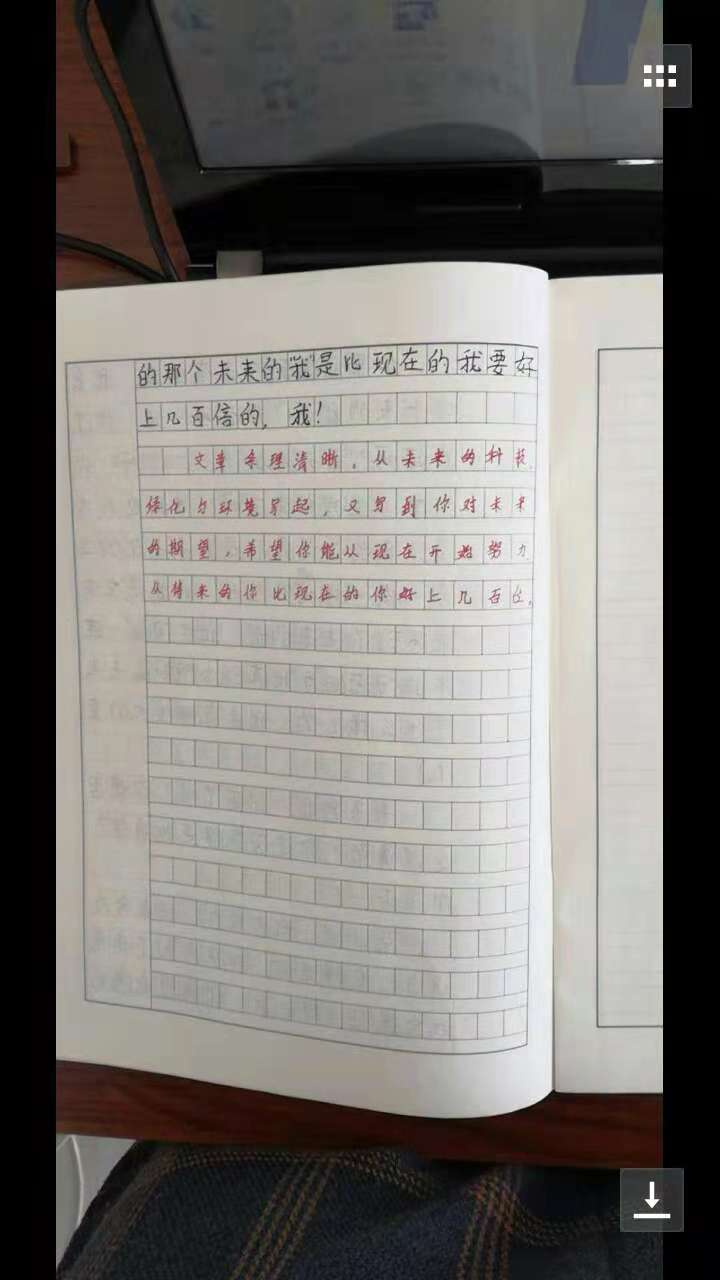 的那个未来的"我"是比现在的我要好
上几百倍的，我！
文章条理清晰，从未来的科技、
绿化与环境写起，又写到你对未来
的期望，希望你能从现在开始努力，
从将来的你比现在的你好上几百倍。